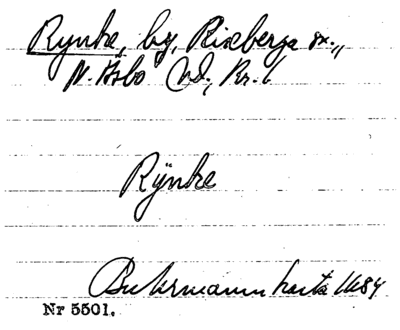 Rynke, by, Riseberga sn.,
N. Åsbo hd., Kr. l
Rÿnke
Buhrmanns karta 1684
Nr 5501.